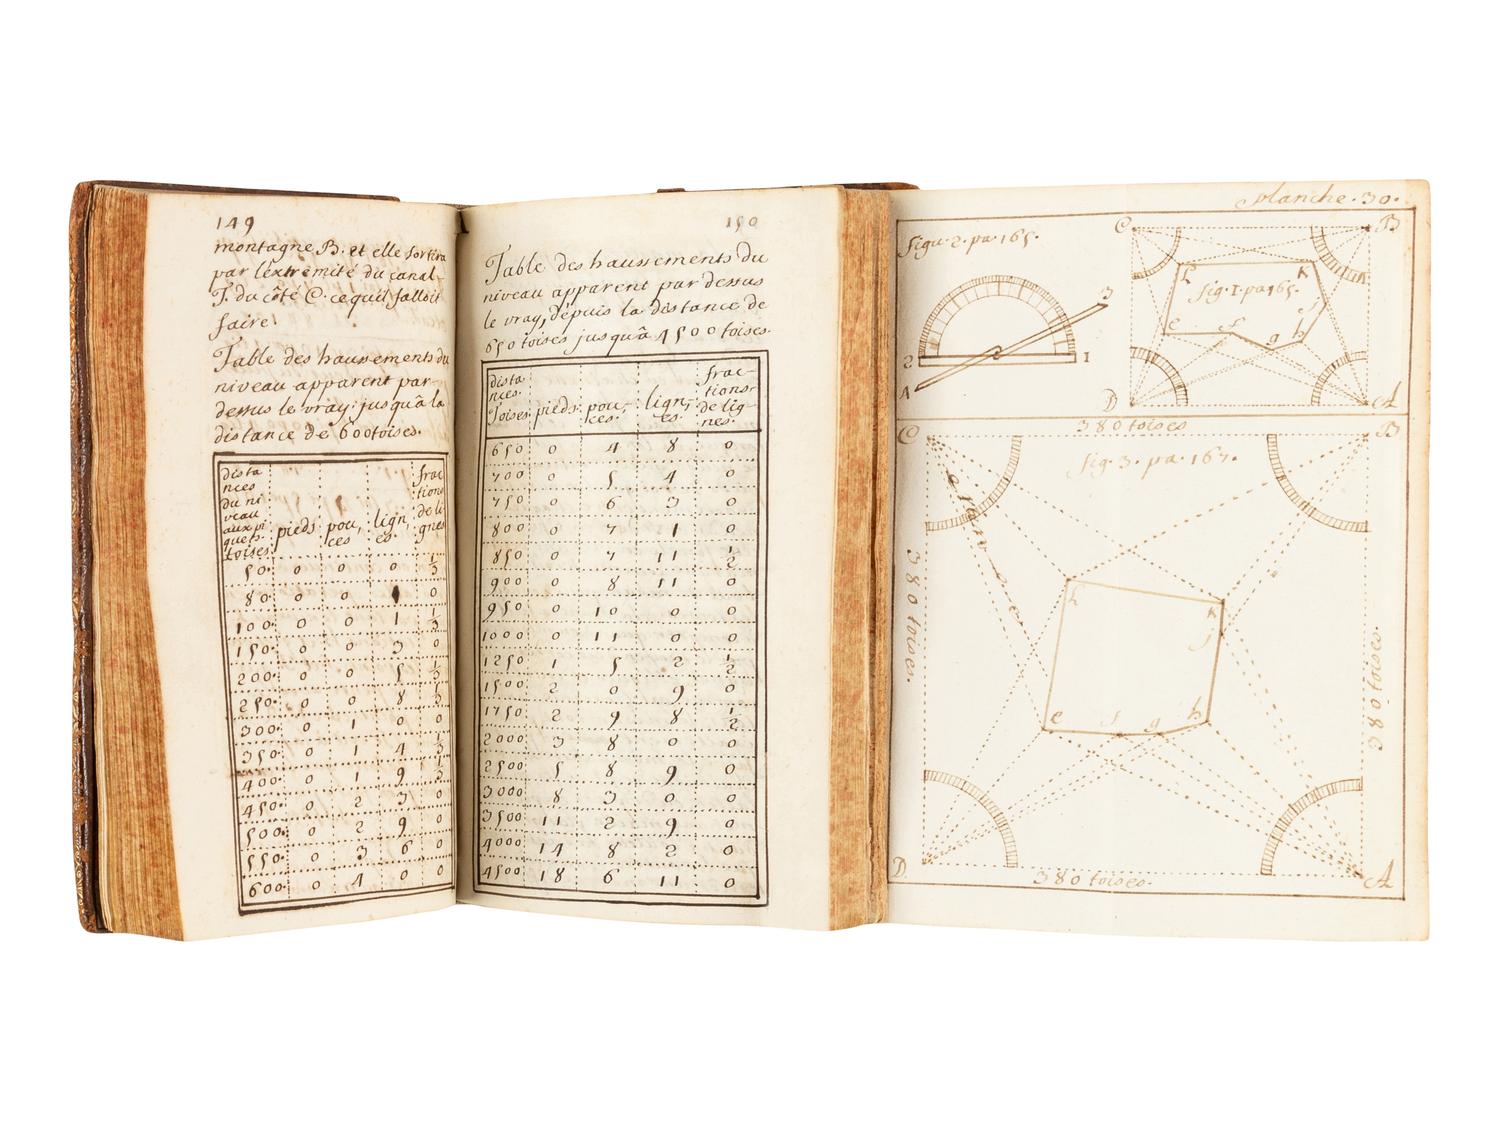 149
montagne B. et elle sortira
par l'extremité du canal
T. du côté C. ce quil falloit
faire.
Table des haussements du
niveau apparent par
dessus le vray; jusqu'à la
distance de 600 toises.
dista
nces
du ni
veau
aux pi
quets.
toises
pieds
pou,
ces
lign,
es.
frac
tions
de li
gnes
50. 0 0 0 1/3
80. 0 0 0
100. 0 0 1 1/3
150. 0 0 3 0
200. 0 0 5 1/3
250. 0 0 8 1/3
300. 0 1 0 0
350. 0 1 4 1/3
400. 0 1 9 1/3
450. 0 2 3 0
500. 0 2 9 0
550. 0 3 6 0
600. 0 4 0 0
150
Table des haussements du
niveau apparent par dessus
le vray, depuis la distance de
650 toises jusqu'à 4500 toises.
dista
nces.
Toises.
pieds.
pou,
ces.
lign,
es.
frac-
tions
de lig-
nes.
650 0 4 8 0
700 0 5 4 0
750 0 6 3 0
800 0 7 1 0
850 0 7 11 1/2
900 0 8 11 0
950 0 10 0 0
1000 0 11 0 0
1250 1 5 2 1/2
1500 2 0 9 0
1750 2 9 8 1/2
2000 3 8 0 0
2500 5 8 9 0
3000 8 3 0 0
3500 11 2 9 0
4000 14 8 2 0
4500 18 6 11 0
planche. 30.
figu. 2. pa 165.
A B 1 2
C B
fig. 1. pa 165.
L K
e f g h j
D A
C 380 toises B
fig. 3. pa. 167.
380 toises.
380 toises.
L K
j
e f g h
D 380 toises. A